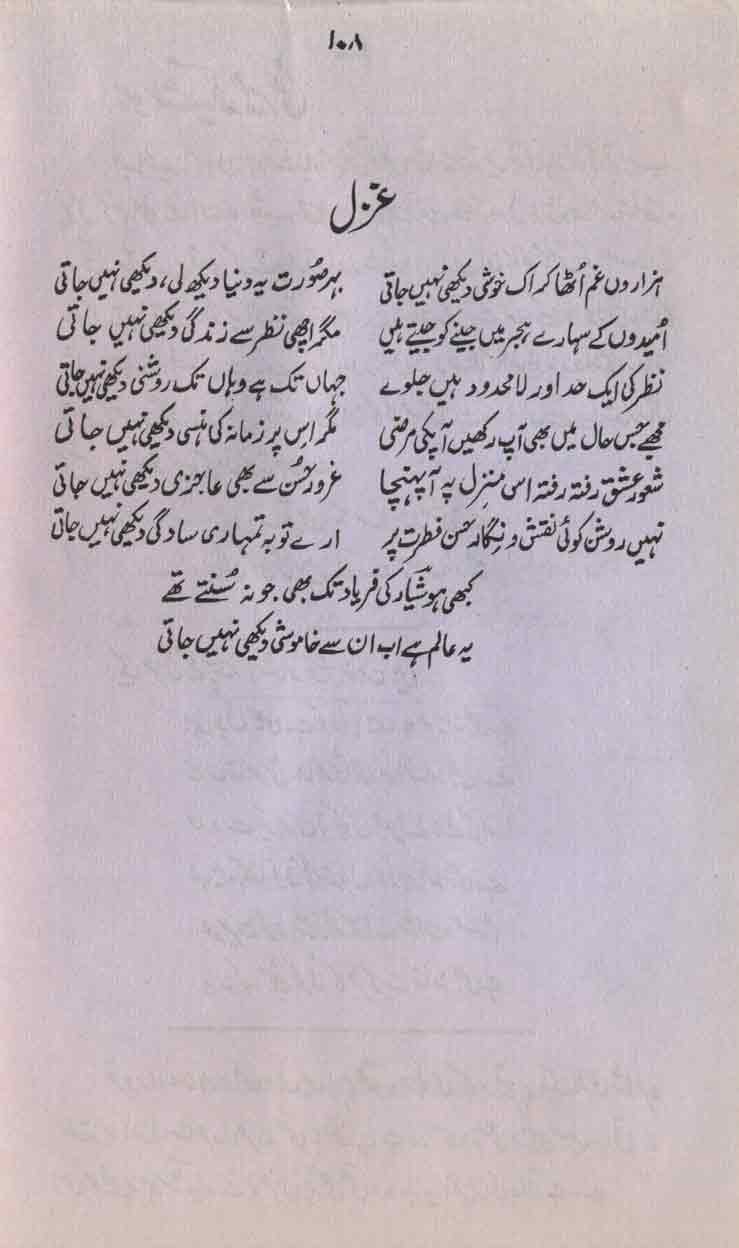 ۱۰۸
غزل
ہزاروں غم اُٹھا کر اک خوشی دیکھی نہیں جاتی بہر صُورت یہ دنیا دیکھ لی، دیکھی نہیں جاتی
اُمیدوں کے سہارے ہجر میں جینے کو جیتے ہیں مگر اچھی نظر سے زندگی دیکھی نہیں جاتی
نظر کی ایک حد اور لامحدود ہیں جلوے جہاں تک ہے وہاں تک روشنی دیکھی نہیں جاتی
مجھے جس حال میں بھی آپ رکھیں آپکی مرضی مگر اس پر زمانہ کی ہنسی دیکھی نہیں جاتی
شعورِ عشق رفتہ رفتہ اسی منزل پہ آ پہنچا غرورِ حُسن سے بھی عاجزی دیکھی نہیں جاتی
نہیں روشن کوئی نقش و نگار حسن فطرت پر ارے توبہ تمہاری سادگی دیکھی نہیں جاتی
کبھی ہوشیار کی فریاد تک بھی جو نہ سُنتے تھے
یہ عالم ہے اب ان سے خاموشی دیکھی نہیں جاتی